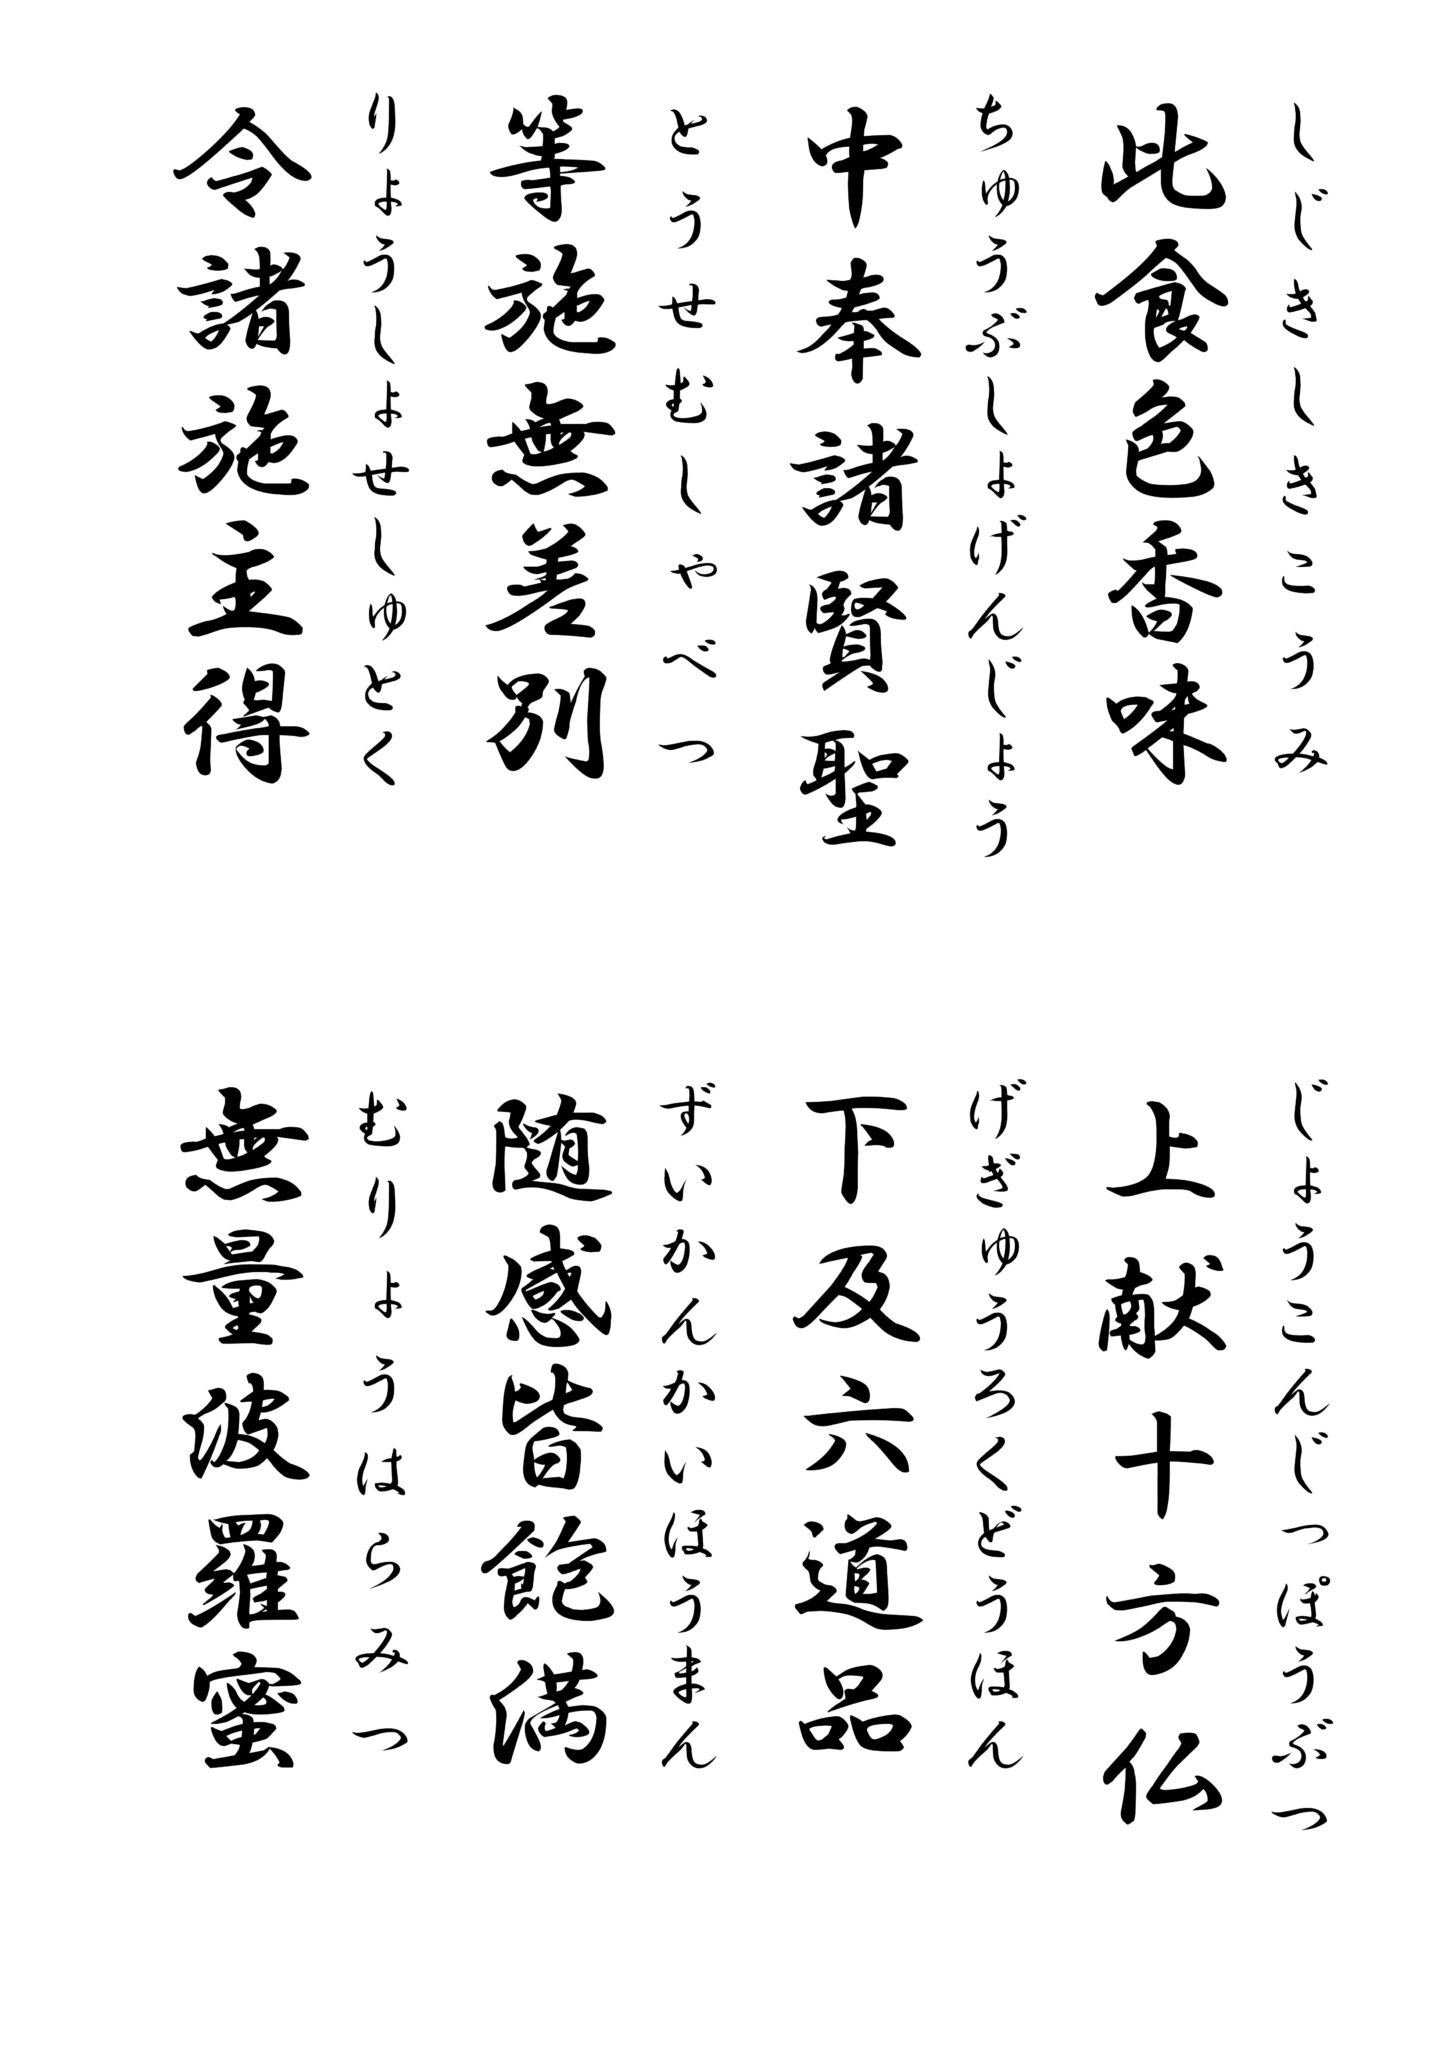 しじきしきこうみ
此食色香味
じょうこんじっぽうぶつ
上献十方仏
ちゅうぶしょげんじょう
中奉諸賢聖
げぎゅうろくどうほん
下及六道品
とうせむしゃべつ
等施無差別
ずいかんかいほうまん
随感皆飽満
りょうしょせしゅとく
令諸施主得
むりょうはらみつ
無量波羅蜜